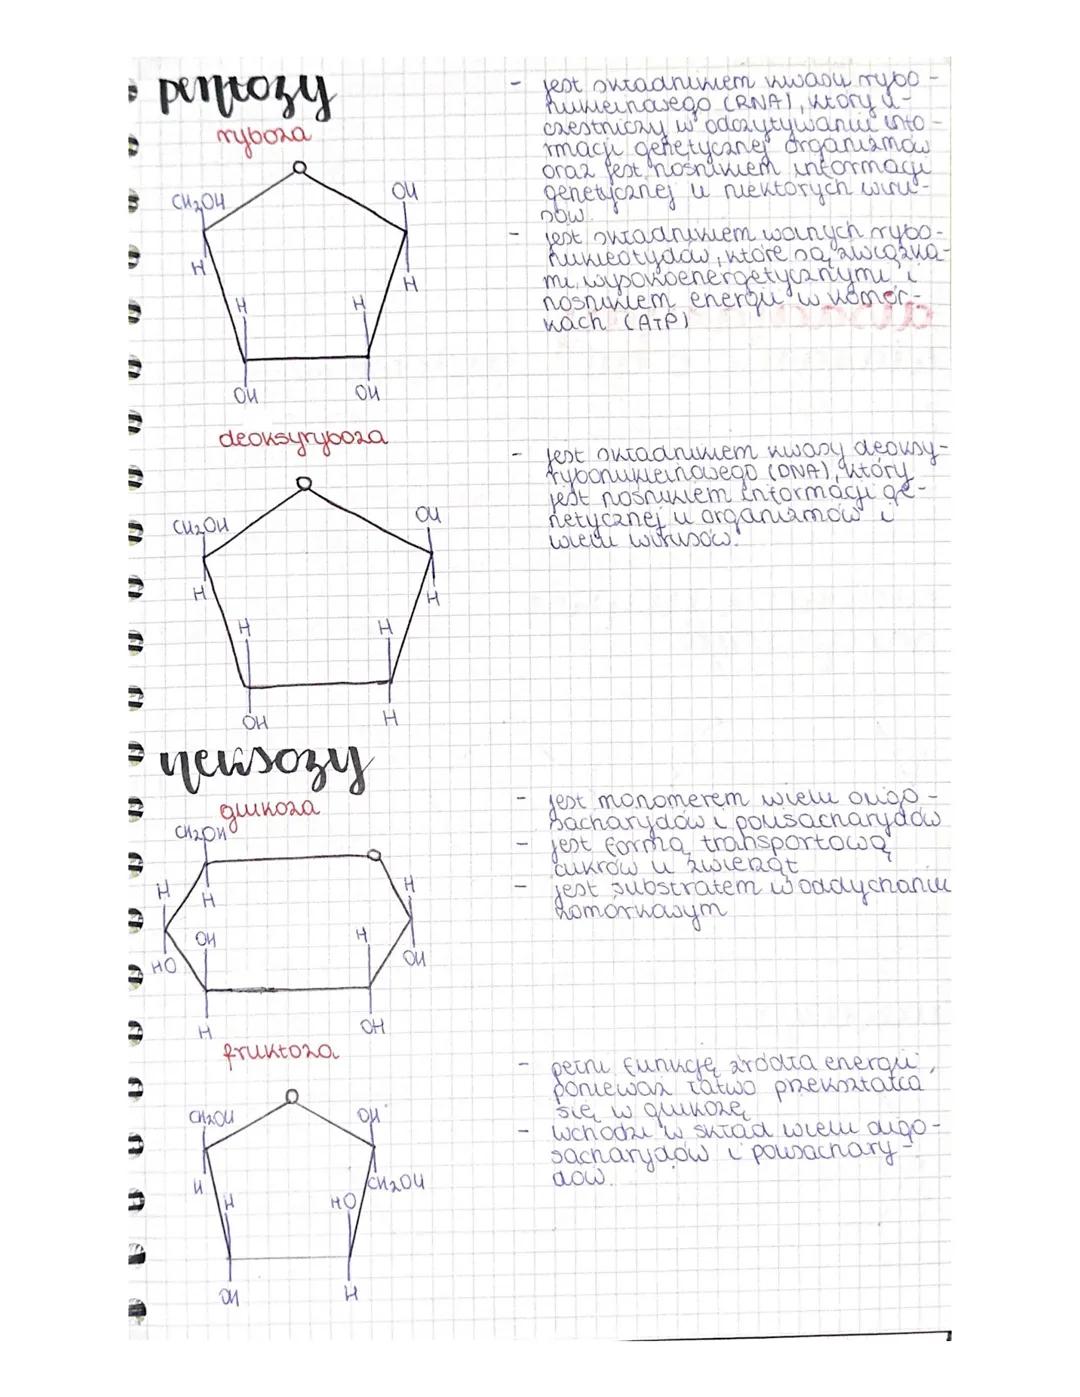 pentozy
ryboza
O
CH₂OH
OH
H
H
H
H
OH
OH
- jest składnikiem kwasu rybo-
nukleinowego (RNA), który u-
czestniczy w odczytywaniu info-
rmacji genetycznej organizmów
oraz jest nośnikiem informacji
genetycznej u niektórych wiru-
sów.
- jest składnikiem wolnych rybo-
nukleotydów, które są związka-
mi wysokoenergetycznymi i
nośnikiem energii w komór-
kach (ATP)
deoksyryboza
O
CH₂OH
OH
H
H
H
H
OH
H
- jest składnikiem kwasy deoksy-
rybonukleinowego (DNA), który
jest nośnikiem informacji ge-
netycznej u organizmów i
wielu wirusów.
heksozy
glukoza
CH₂OH
O
H
H
H
OH
H
HO
OH
H
OH
- jest monomerem wielu oligo-
sacharydów i polisacharydów
- jest formą transportową
cukrów u zwierząt
- jest substratem w oddychaniu
komórkowym
fruktoza
O
CH₂OH
OH
H
H
HO
CH₂OH
OH
H
- pełni funkcję źródła energii,
ponieważ łatwo przekształca
się w glukozę
- wchodzi w skład wielu oligo-
sacharydów i polisachary-
dów.